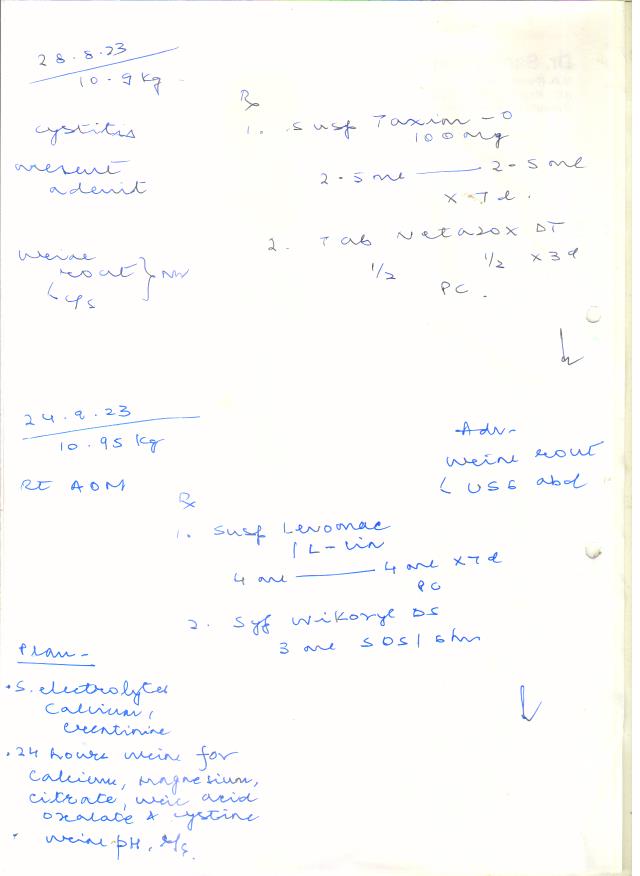 28.8.23
10.9 kg
cystitis
mesent
adenit
urine
rout } NW
c/s
Rx
1. Susp Taxim-O
100 mg
2-5 ml — 2-5 ml
x 7 d.
2. Tab Netazox DT
1/2 1/2 x 3 d
PC.
24.9.23
10.95 kg
RE AOM
Adv-
urine rout
USG abd
Rx
1. Susp Levomac
/ L-Cin
4 ml — 4 ml x 7 d
PC
2. Syp Wikoryl DS
3 ml SOS / 6hr
Plan -
• S. electrolytes
Calcium,
creatinine
• 24 hours urine for
Calcium, magnesium,
citrate, uric acid
oxalate & cystine
• urine pH,